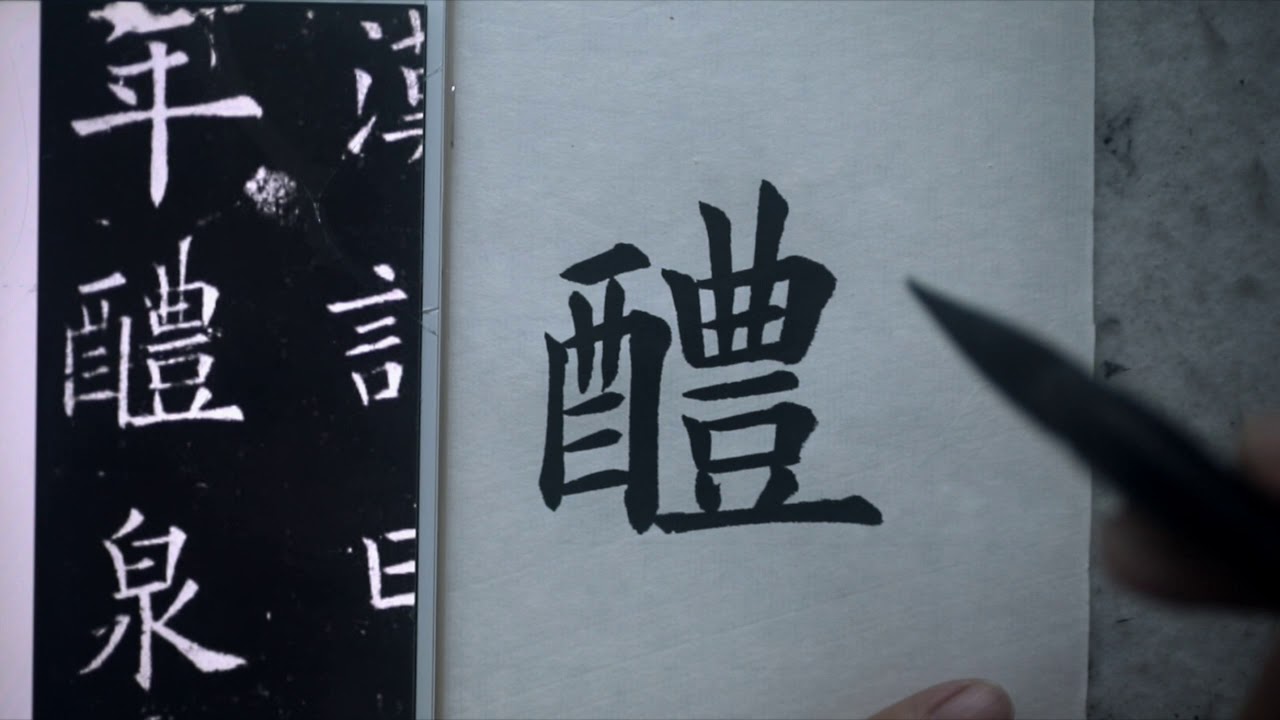 漢記曰
年醴泉
醴